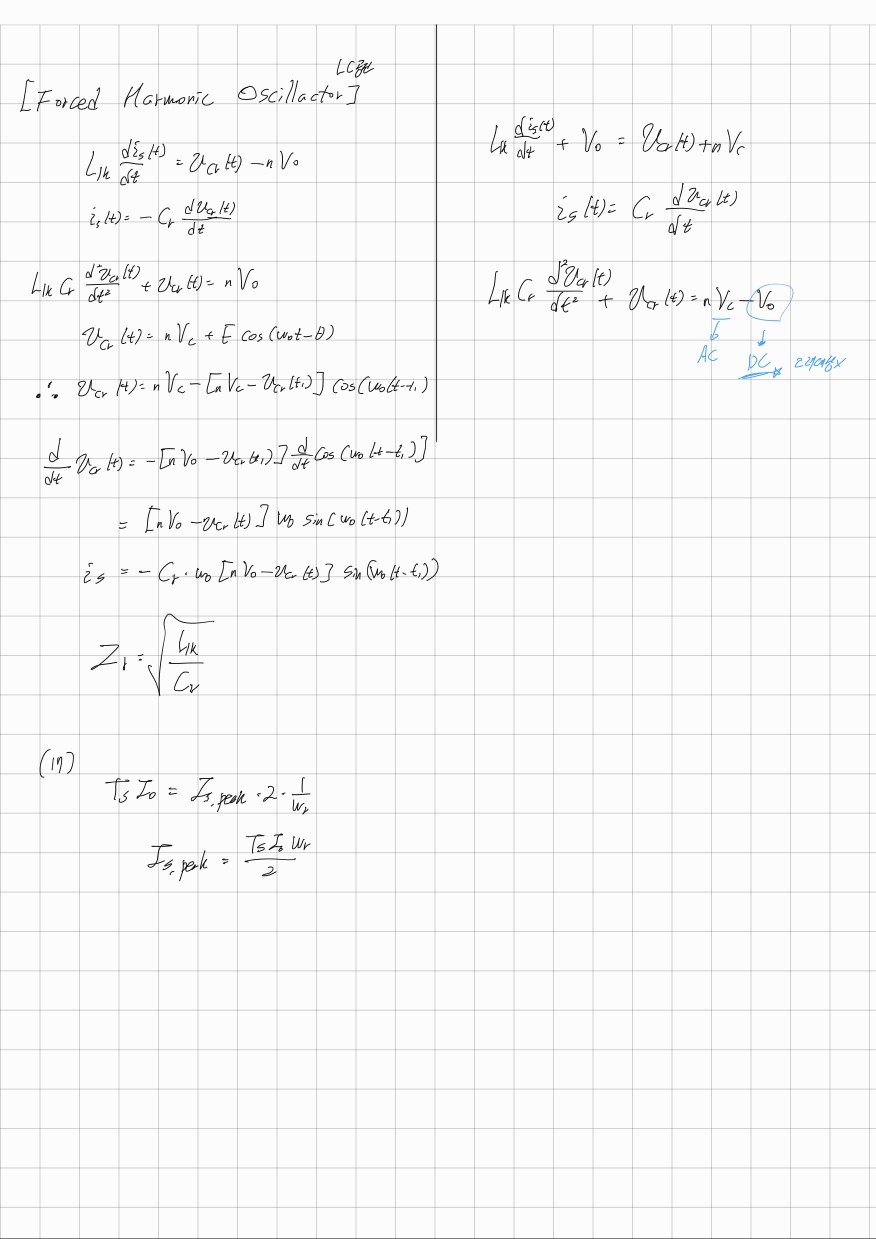 LC공진
[Forced Harmonic Oscillactor]
L_lk di_s(t)/dt = v_cr(t) - nV_o
i_s(t) = - C_r dv_cr(t)/dt
L_lk C_r d²v_cr(t)/dt² + v_cr(t) = nV_o
v_cr(t) = nV_c + E cos(ω_0t-θ)
∴ v_cr(t) = nV_c - [nV_c - v_cr(t_1)] cos(ω_0(t-t_1)
d/dt v_cr(t) = -[nV_o - v_cr(t_1)] d/dt cos(ω_0(t-t_1)]
= [nV_o - v_cr(t)] ω_0 sin(ω_0(t-t_1))
i_s = - C_r · ω_0 [nV_o - v_cr(t)] sin(ω_0(t-t_1))
Z_r = √(L_lk/C_r)
(17)
T_s I_o = I_s,peak · 2 · 1/ω_r
I_s,peak = T_s I_o ω_r / 2
L_lk di_s(t)/dt + V_o = v_cr(t) + nV_c
i_s(t) = C_r dv_cr(t)/dt
L_lk C_r d²v_cr(t)/dt² + v_cr(t) = nV_c - V_o
AC DC